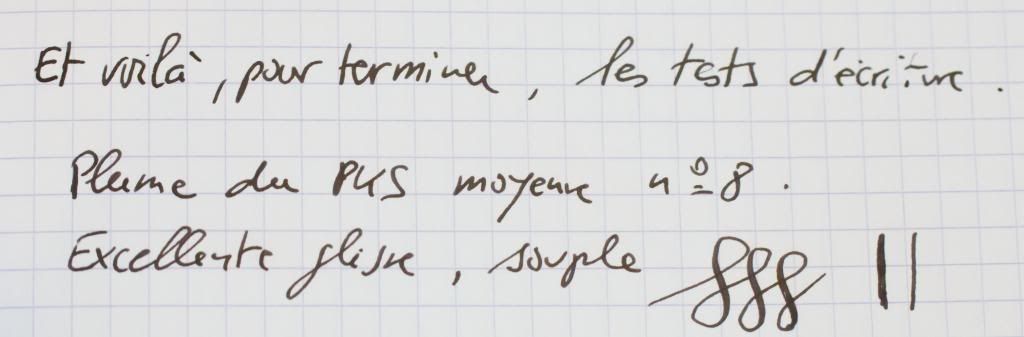 Et voilà, pour terminer, les tests d'écriture.
Plume du PKS moyenne n°8.
Excellente glisse, souple